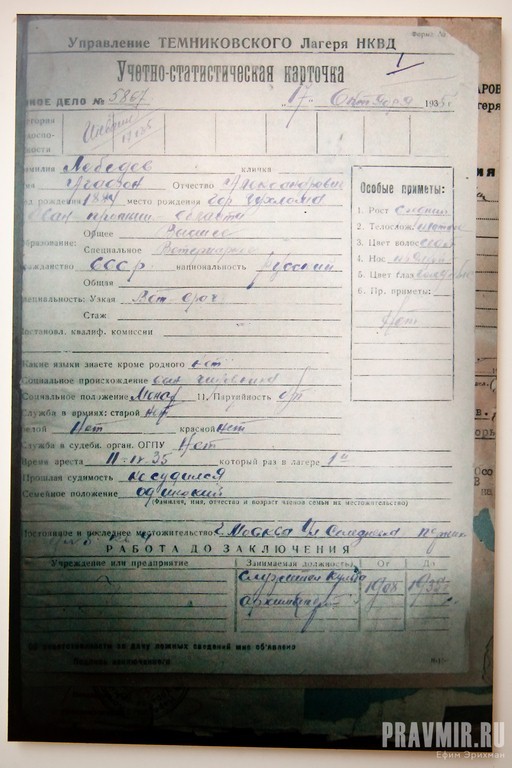 Форма №
Управление ТЕМНИКОВСКОГО Лагеря НКВД
1
Учетно-статистическая карточка
ное дело № 5867
17 Октября 1935 г.
Инвалид
Фамилия Лебедев кличка
Отчество Александрович
рождения место рождения гор. Чухлома
области
Общее Высшее
Образование: Специальное Ветеринарное
гражданство СССР национальность Русский
Общая
специальность: Узкая Вет-врач
Стаж
Постановл. квалиф. комиссии
Какие языки знаете кроме родного нет
Социальное происхождение сын чиновника
Социальное положение Монах 11. Партийность б/п
Служба в армиях: старой нет
белой Нет красной нет
Служба в судебн. орган. ОГПУ Нет
Время ареста 11-IV-35 который раз в лагере 1й
Прошлая судимость не судился
Семейное положение одинокий
(Фамилия, имя, отчества и возраст членов семьи их местожительство)
Постоянное и последнее местожительство г. Москва
РАБОТА ДО ЗАКЛЮЧЕНИЯ
Учреждение или предприятие Занимаемая должность От До
Служитель культа 1908
архимандрит
Об ответственности за дачу ложных сведений мне об'явлено
Подпись заключенного
Особые приметы:
1. Рост средний
2. Телослож.
3. Цвет волос
4. Нос
5. Цвет глаз
6. Пр. приметы:
Нет
PRAVMIR.RU
Ефим Эрихман